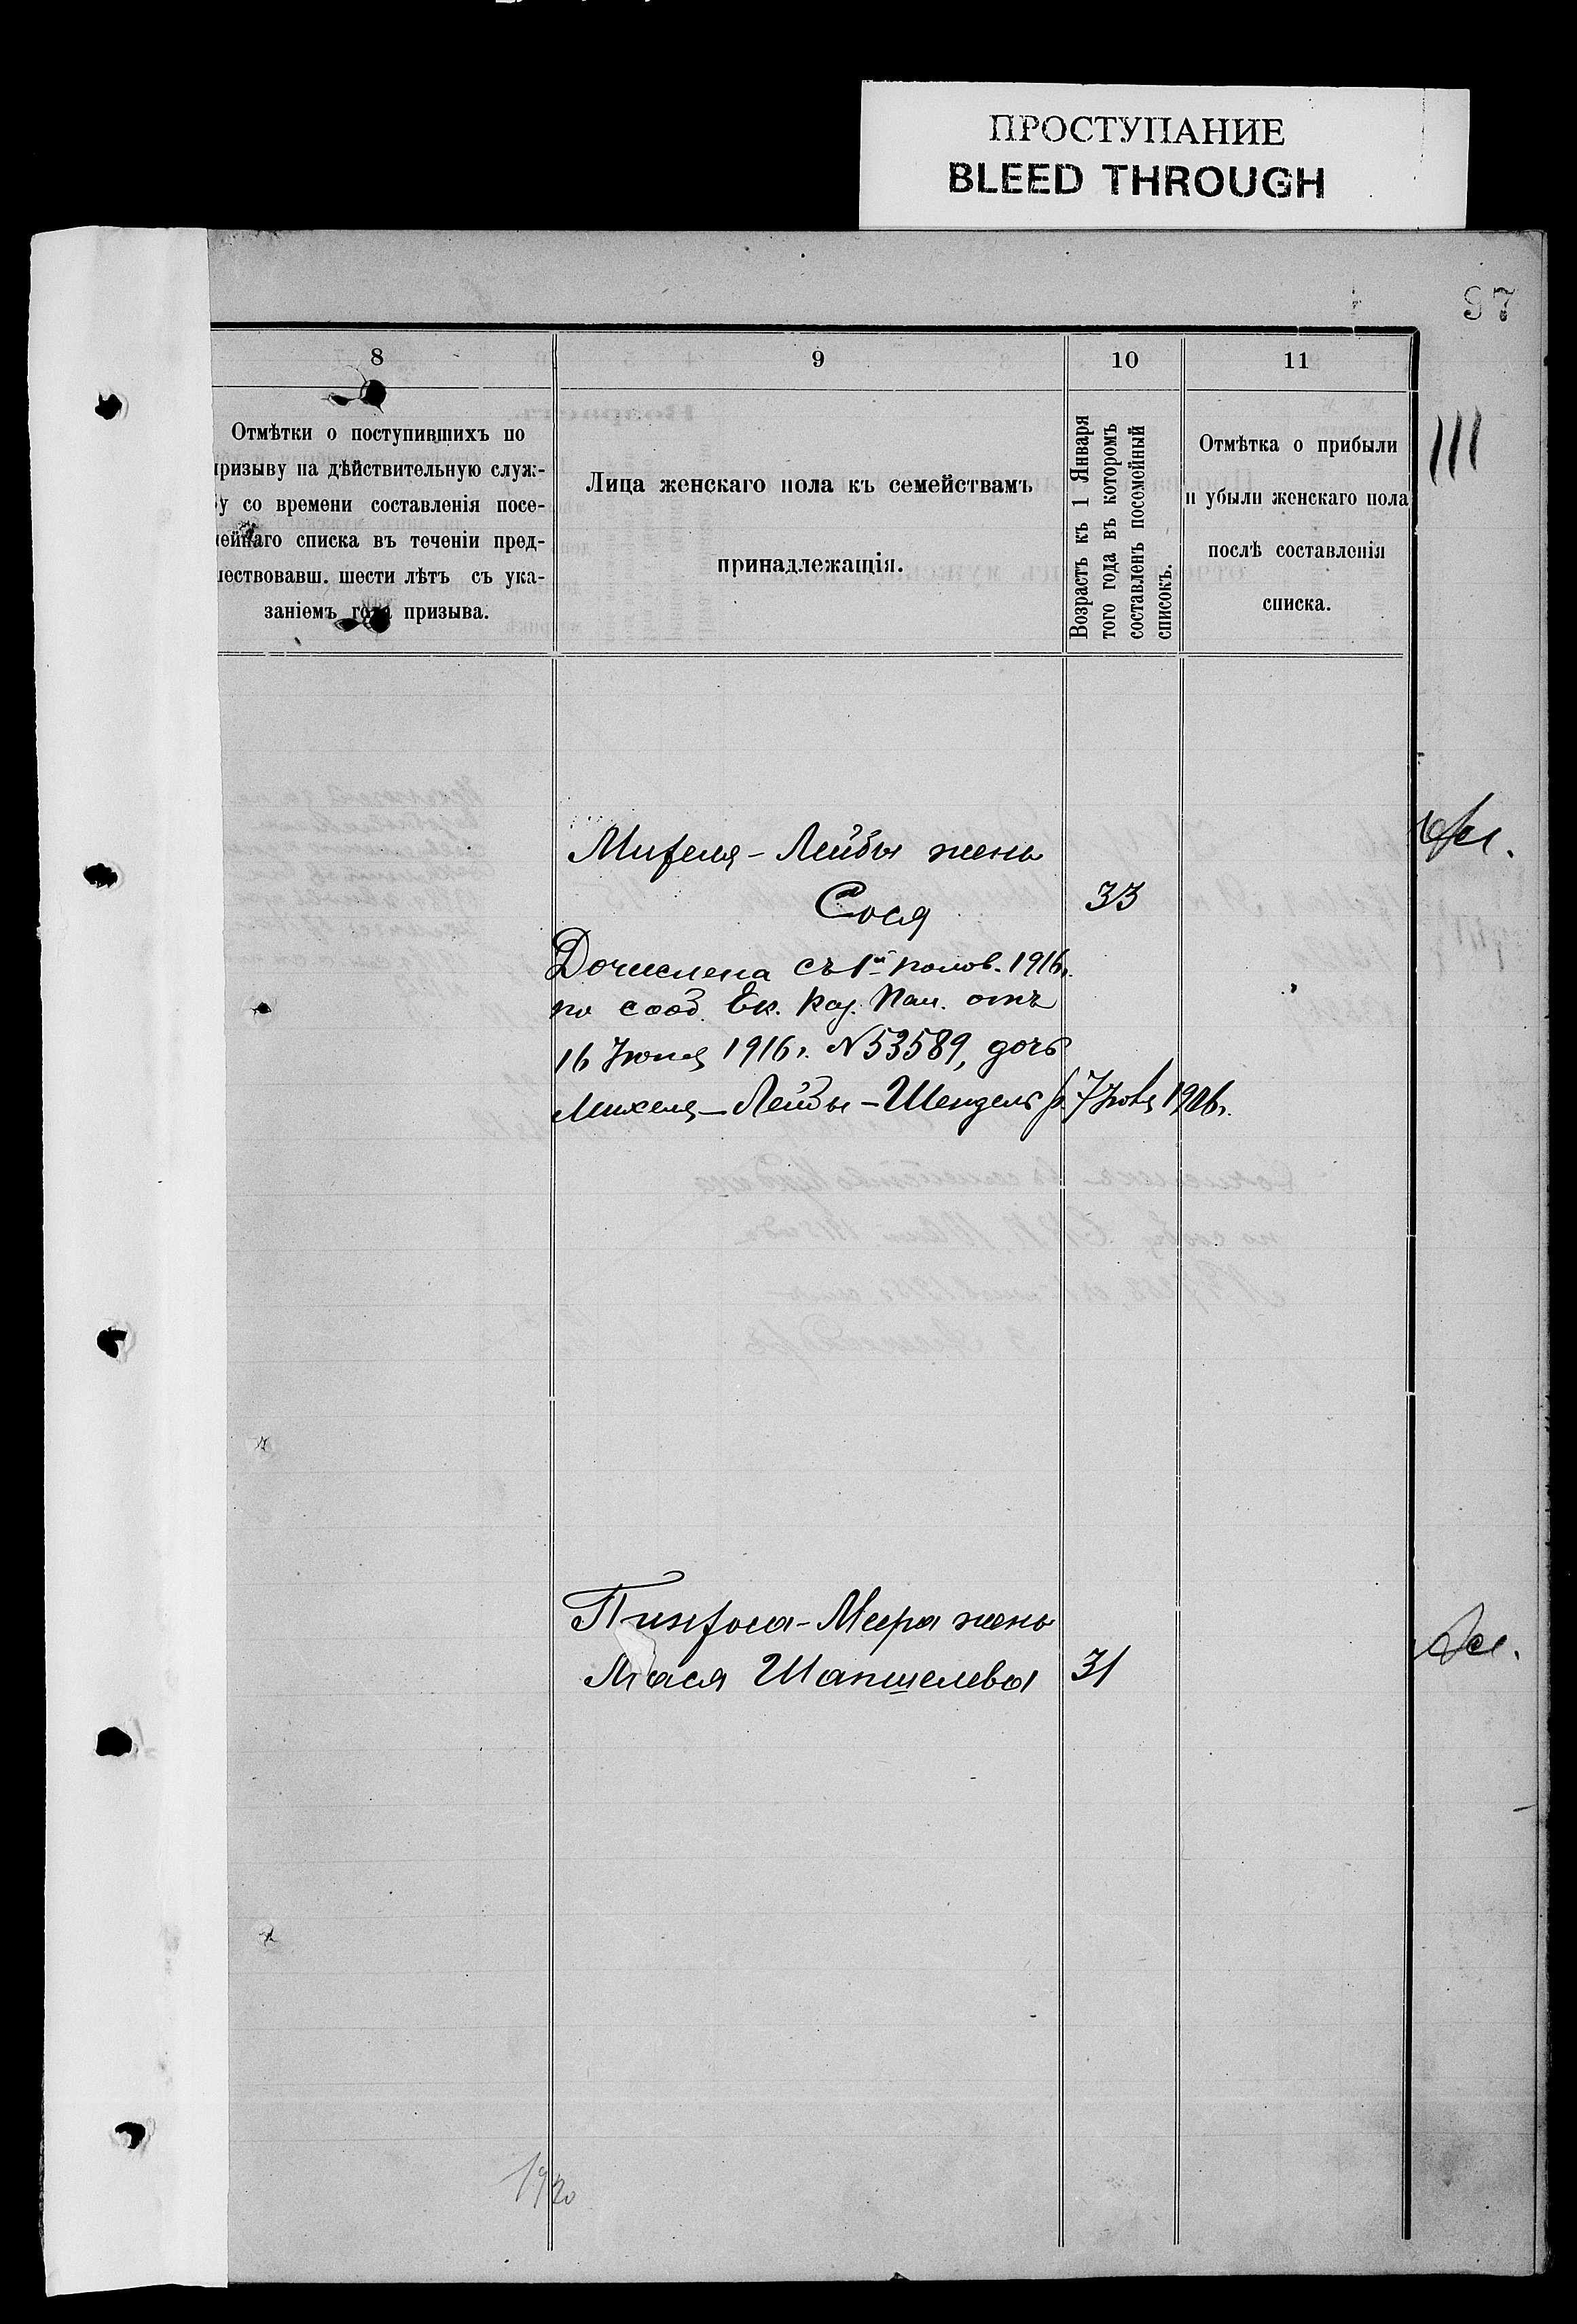 ПРОСТУПАНИЕ
BLEED THROUGH
97
8
9
10
11
Отмѣтки о поступившихъ по
призыву на дѣйствительную служ-
бу со времени составленія посе-
мейнаго списка въ теченіи пред-
шествовавш. шести лѣтъ съ ука-
заніемъ года призыва.
Лица женскаго пола къ семействамъ
принадлежащія.
Возрастъ къ 1 Января
того года въ которомъ
составленъ посемейный
списокъ.
Отмѣтка о прибыли
и убыли женскаго пола
послѣ составленія
списка.
Михеля-Лейбы жена
Сося 33
Дочислена съ 1й полов. 1916г.
по сооб. Ек. Каз. Пал. отъ
16 Іюня 1916г. N53589, дочь
Михеля-Лейбы-Шендель р. 7 1906г.
Пинхоса-Меера жена
Мася Шапшелева 31